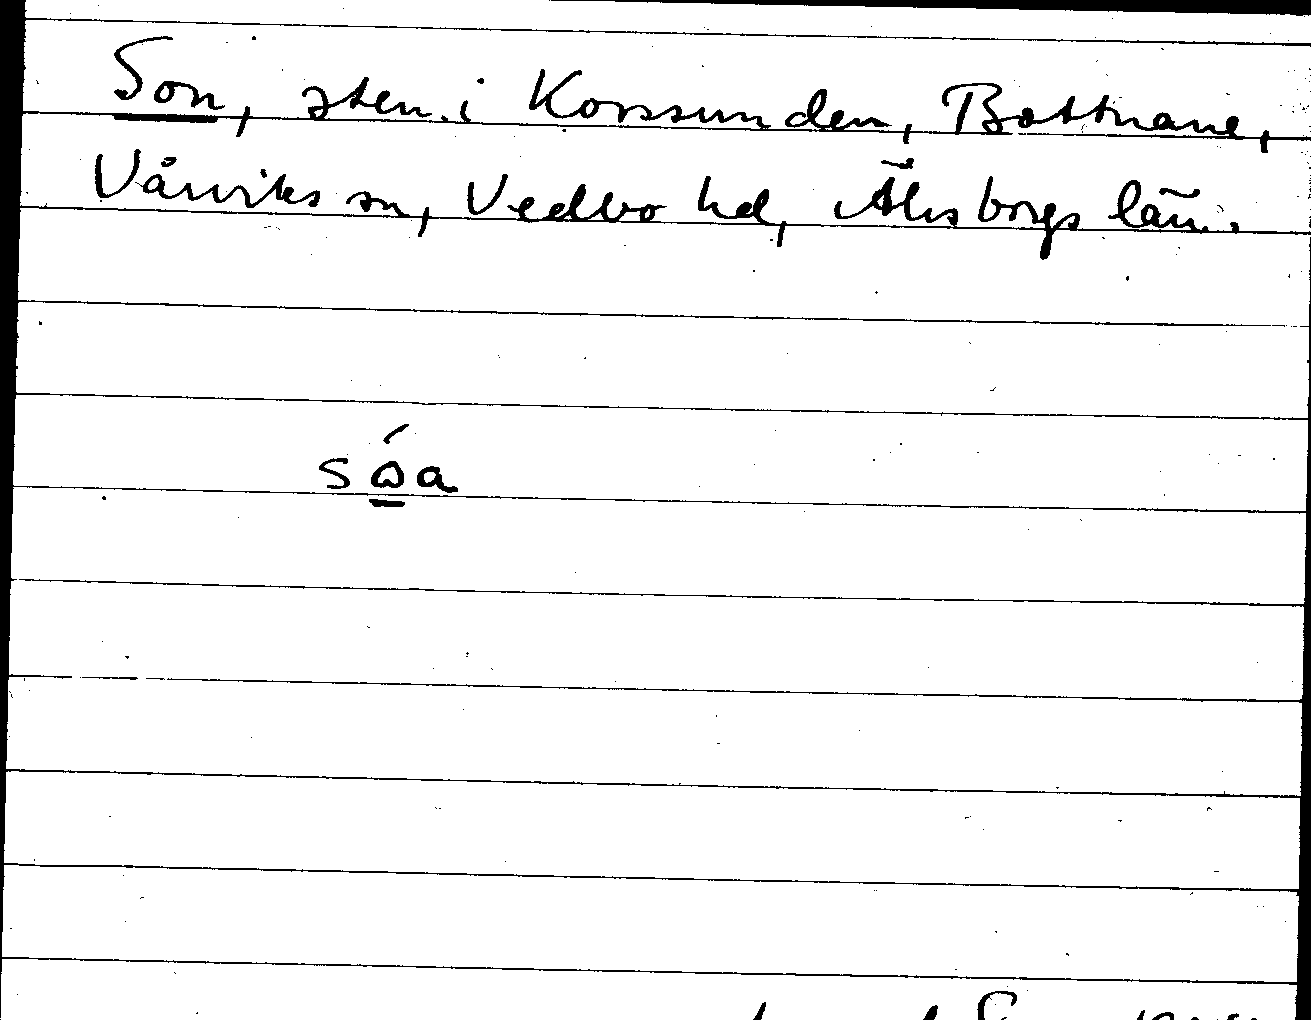 Son, sten i Korssunden, Bottnane,
Vårviks sn, Vedbo hd, Älvsborgs län.
sɷ́a